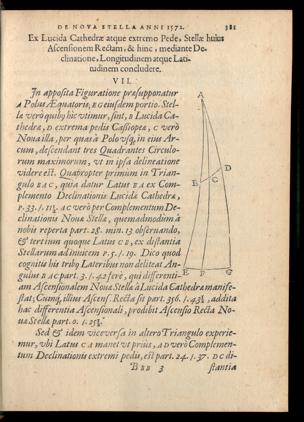 DE NOVA STELLA ANNI 1572. 381
Ex Lucida Cathedræ atque extremo Pede, Stellæ huius
Ascensionem Rectam, & hinc, mediante De-
clinatione, Longitudinem atque Lati-
tudinem concludere.
VII.
In apposita Figuratione præsupponatur
A Polus Æquatoris, EG eiusdem portio. Stel-
læ verò quibus hic utimur, sint, B Lucida Ca-
thedræ, D extrema pedis Cassiopeæ, C verò
Nova illa, per quas à Polo usq, in eius Ar-
cum, descendant tres Quadrantes Circulo-
rum maximorum, vt in ipsa delineatione
videre est. Quapropter primùm in Trian-
gulo BAC, quia datur Latus BA ex Com-
plemento Declinationis Lucidæ Cathedræ,
AC verò per Complementum De-
clinationis Novæ Stellæ, quemadmodùm à
nobis reperta part. 28. min. 13 observando,
& tertium quoque Latus CB, ex distantia
Stellarum ad invicem p. 5. /. 19. Dico quod
cognitis his tribus Lateribus non deliteat An-
gulus BAC part. 3. /. 42 ferè, qui differenti-
am Ascensionalem Novæ Stellæ à Lucida Cathedræ manife-
stat; Cumq, illius Ascens. Recta sit part. 356. /. 43½, addita
hac differentia Ascensionali, prodibit Ascensio Recta No-
væ Stellæ part. 0. /. 25½.
Sed & idem viceversa in altero Triangulo experie-
mur, vbi Latus CA manet vt prius, AD verò Complemen-
tum Declinationis extremi pedis, est part. 24. /. 37. DC di-
Bbb 3 stantia
A
D
B
C
E
F
G